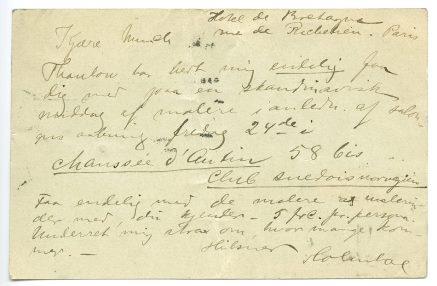 Hotel de Bretagne
rue de Richelieu, Paris
Kjære Munch
Thaulow har bedt mig endelig faa
dig med paa en skandinavisk
middag af malere i anledn. af salon-
gens aabning, fredag 24de i
Chaussée d'Antin 58 bis
Club suedois norvegien
Faa endelig med de malere og malerin-
der med, du kjender. 5 frc. pr. person.
Underret mig strax om, hvor mange kom-
mer. —
Hilsner